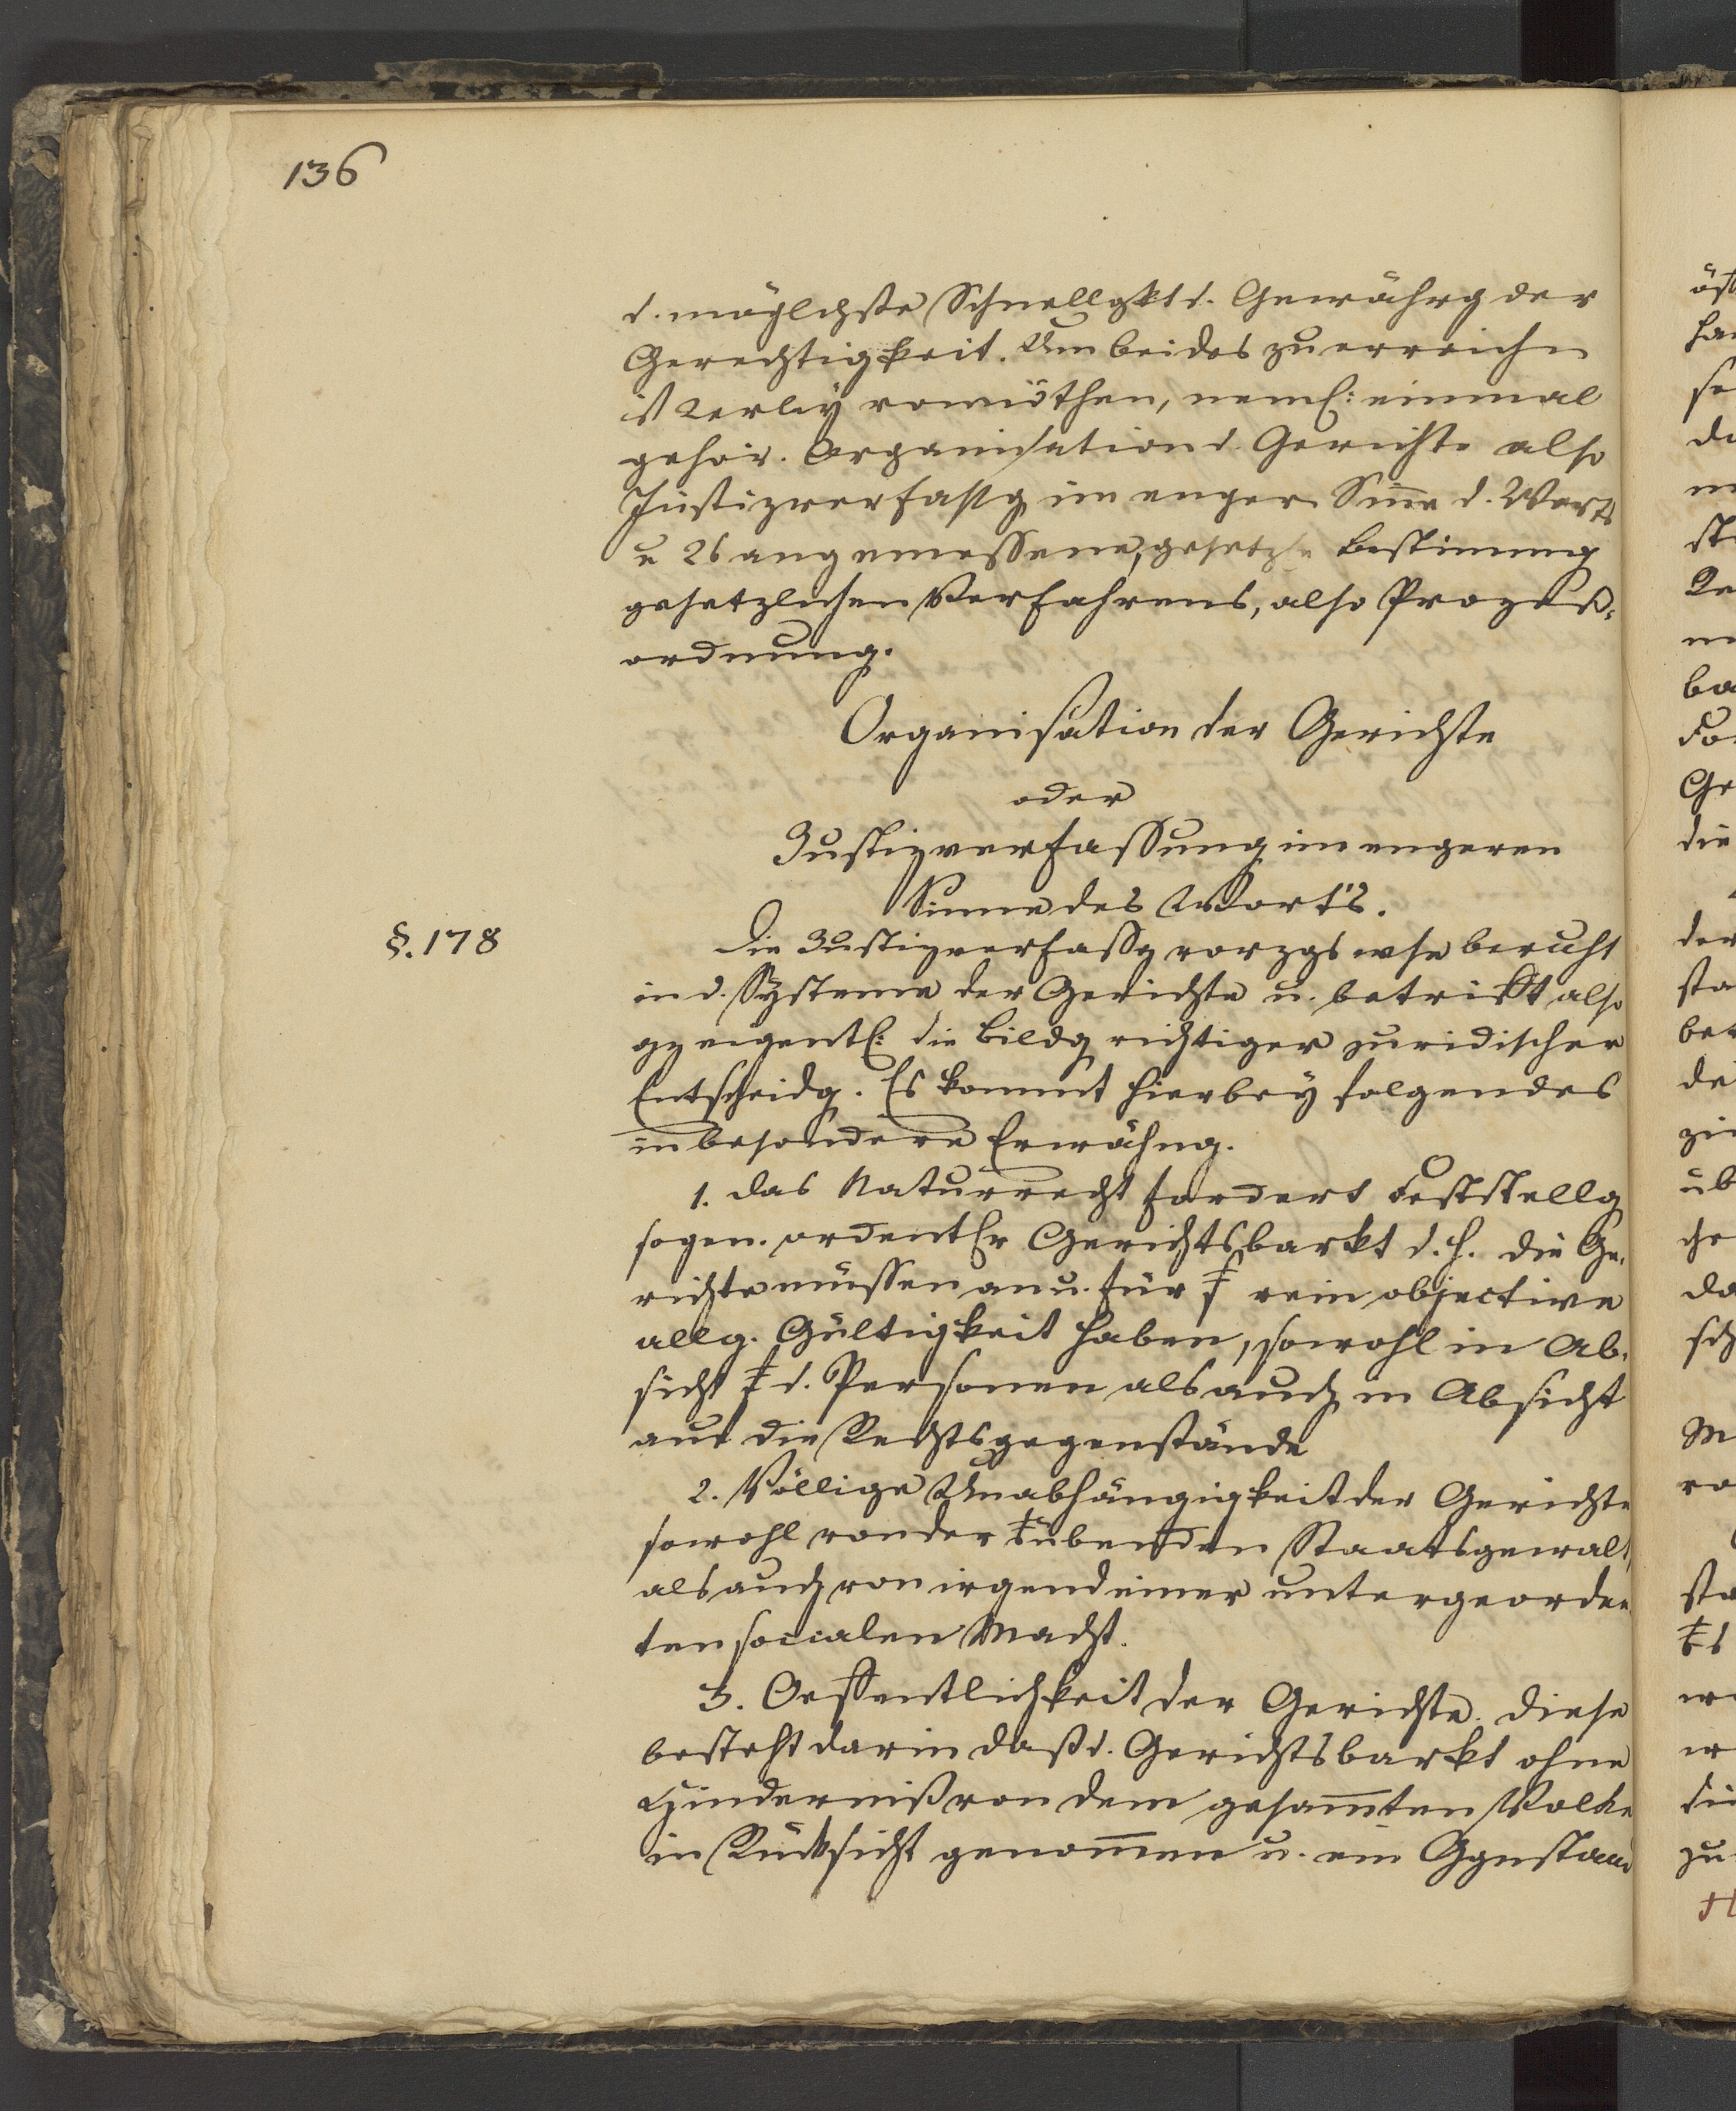 136
d. möglchste Schnellgkt d. Gewährg der
Gerechtigkeit. Um beides zu erreichen
ist 2erley vonnöthen, neml: einmal
gehör. Organisation d. Gerichte also
Justizverfassg im engern Siñe d. Worts
u 2s angemessene, gesetzle Bestimung
gesetzlichen Verfahrens, also Prozeß-
ordnung.
Organisation der Gerichte
oder
Justizverfassung im engeren
Sinne des Wort's.
§. 178
Die Justizverfassg vorzgswse beruht
in d. Systeme der Gerichte u. betrifft also
gz eigentl: die Bildg richtiger juridischer
Entscheidg. Es kommt hierbey folgendes
in besondere Erwähng.
1. das Naturrecht fordert Feststellg
sogen. ordentler Gerichtsbarkt d. h. die Ge-
richte müssen an u. für rein objective
allg. Gültigkeit haben, sowohl in Ab-
sicht d. Personen als auch in Absicht
auf die Rechtsgegenstände
2. Völlige Unabhängigkeit der Gerichte
sowohl von der übenden Staatsgewalt,
als auch von irgend einer untergeordne-
ten socialen Macht.
3. Oeffentlichkeit der Gerichte. diese
besteht darin daß d. Gerichtsbarkt ohne
Hinderniß von dem gesam̄ten Volke
in Rücksicht genom̄en u. ein Ggnstand